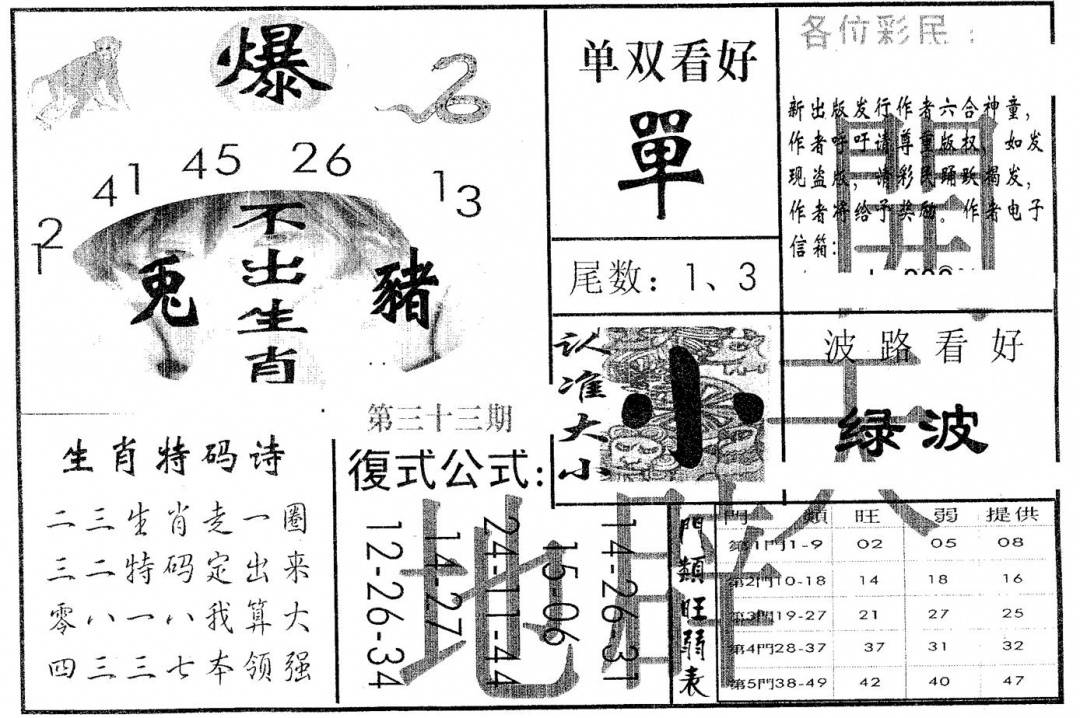 爆
45 26
41 13
2
1
不出生肖
兎 豬
单双看好
單
尾数：1、3
各位彩民：
新出版发行作者六合神童，
作者呼吁请尊重版权，如发
现盗版，请彩民踊跃揭发，
作者将给予奖励。作者电子
信箱：
认准大小
小
波路看好
绿波
第三十三期
生肖特码诗
二三生肖走一圈
三二特码定出来
零八一八我算大
四三三七本领强
復式公式:
12-26-34
14-27
24-11-44
15-06
14-26-31
門類旺弱表
門類 旺 弱 提供
第1門1-9 02 05 08
第2門10-18 14 18 16
第3門19-27 21 27 25
第4門28-37 37 31 32
第5門38-49 42 40 47